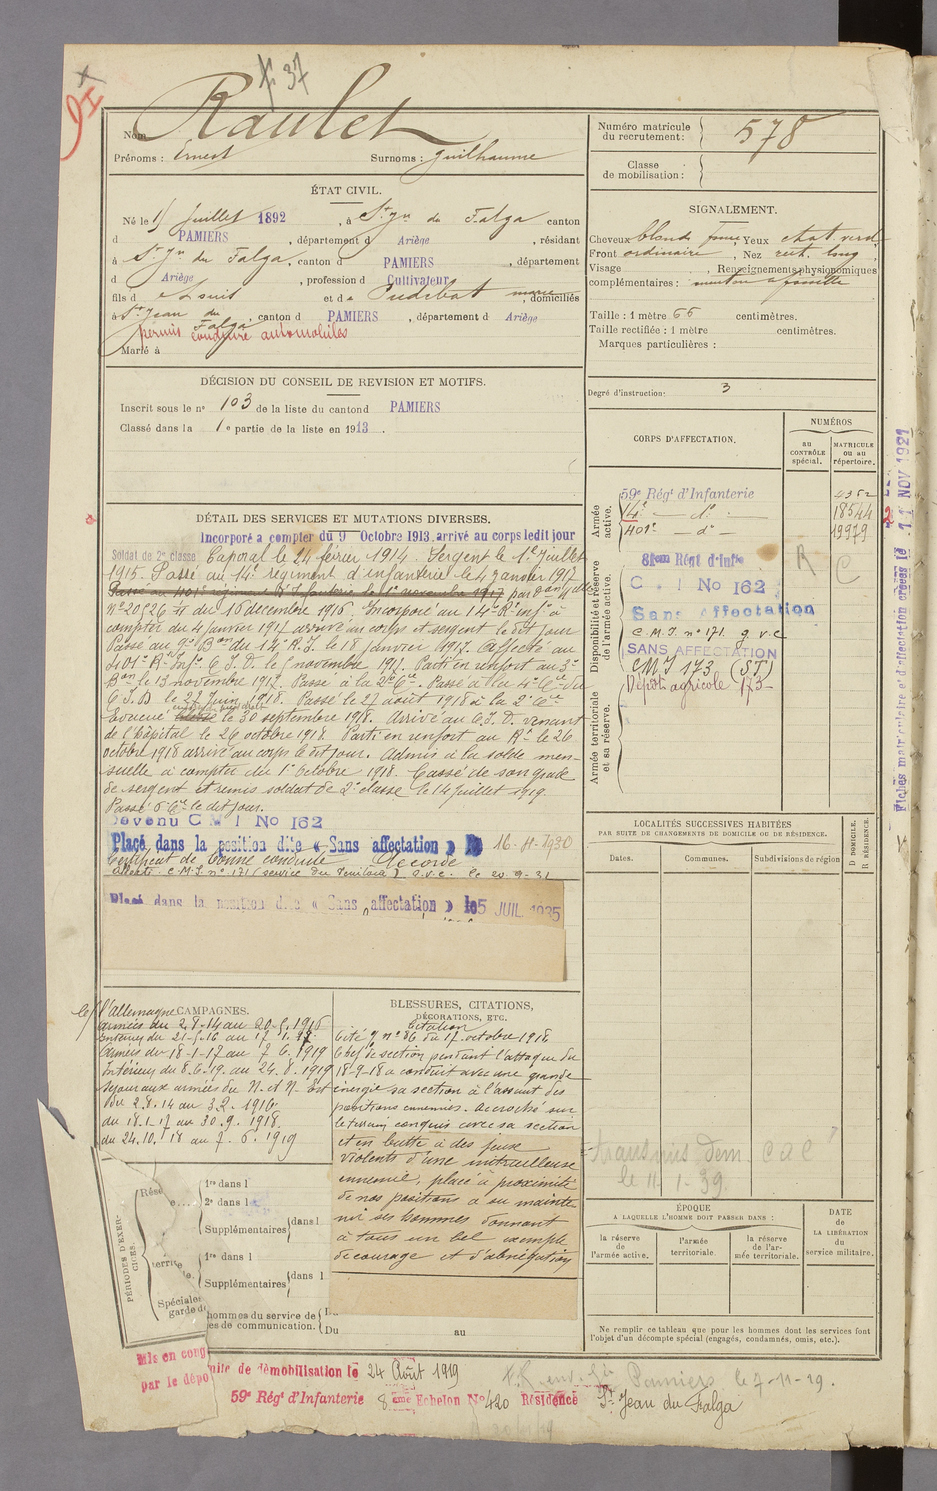 + 37
Nom Raulet
Prénoms : Ernest Surnoms : Guilhaume
ÉTAT CIVIL.
Né le 15 Juillet 1892, à St Jn du Falga canton
d PAMIERS, département d Ariège, résidant
à St Jn du Falga, canton d PAMIERS, département
d Ariège, profession d Cultivateur
fils d e Louis et d e Pudebat marie, domiciliés
à St Jean du Falga, canton d PAMIERS, département d Ariège
permis conduire automobiles
Marié à
DÉCISION DU CONSEIL DE REVISION ET MOTIFS.
Inscrit sous le no 103 de la liste du canton d PAMIERS
Classé dans la 1e partie de la liste en 1913.
DÉTAIL DES SERVICES ET MUTATIONS DIVERSES.
Incorporé a compter du 9 Octobre 1913, arrivé au corps ledit jour
Soldat de 2e classe Caporal le 14 février 1914. Sergent le 1er Juillet
1915. Passé au 14e régiment d'infanterie le 4 janvier 1917
Passé au 401e régiment d'Infanterie le 1er novembre 1917 par
No 20526 du 16 decembre 1916. Incorporé au 14e Rt Infie à
compter du 4 Janvier 1917 arrivé au corps et sergent le dit jour
Passé au 9e Bon du 14e R.I. le 18 janvier 1917. Affecté au
401e Rt Infie C.I.D. le 1 novembre 1917. Parti en renfort au 3e
Bon le 13 novembre 1917. Passé à la 2e Cie. Passé à la 4e Cie du
C.I.D le 22 Juin 1918. Passé le 27 aout 1918 à la 2e Cie
Evacué le 30 septembre 1918. Arrivé au C.I.D. venant
de l'hôpital le 26 octobre 1918 Parti en renfort au Rt le 26
octobre 1918 arrivé au corps le dit jour. Admis à la solde men-
suelle à compter du 1er Octobre 1918. Cassé de son grade
de sergent et remis soldat de 2e classe le 14 juillet 1919.
Passé 6 Cie le dit jour.
Devenu C M I No 162
Placé dans la position dite « Sans affectation » le 16-4-1930
Certificat de bonne conduite Accordé
Affecté C.M.I. no 171 (service du Territoire) g.v.c. le 20.9.31
Placé dans la position dite « Sans affectation » le 5 JUIL. 1935
CAMPAGNES.
c/ l'allemagne
armées du 2.8.14 au 20.5.1916
Intérieur du 21-5-16 au 17.1.17.
Armées du 18-1-17 au 7.6.1919
Intérieur du 8.6.19. au 24.8.1919
Séjour aux armées du N. et N. Est
du 2.8.14 au 3.2.1916.
du 18.1.17 au 30.9.1918.
du 24.10.18 au 7.6.1919
BLESSURES, CITATIONS,
DÉCORATIONS, ETC.
Citation
Cité no 86 du 17 octobre 1918
Chef de section pendant l'attaque du
18-9-18 a conduit avec une grande
énergie sa section à l'assaut des
positions ennemies. Accroché sur
le terrain conquis avec sa section
et en butte à des feux
violents d'une mitrailleuse
ennemie, placé à proximité
de nos positions a su mainte
nir ses hommes donnant
à tous un bel exemple
de courage et d'abnégation
PÉRIODES D'EXER-
CICES.
Rése
1re dans l
2e dans l
Supplémentaires dans l
territo
1re dans l
Supplémentaires dans l
Spéciales
garde d
hommes du service de
es de communication.
Du
Du au
Mis en cong
par le dépô
mité de démobilisation le 24 Août 1919
59e Régt d'Infanterie 8ème Echelon No 420 Résidence St Jean du Falga
Pamiers le 7-11-29.
Numéro matricule
du recrutement : 578
Classe
de mobilisation :
SIGNALEMENT.
Cheveux blonds foncé, Yeux chat. verd.
Front ordinaire, Nez rect. long
Visage , Renseignements physionomiques
complémentaires : menton à fossette
Taille : 1 mètre 66 centimètres.
Taille rectifiée : 1 mètre centimètres.
Marques particulières :
Degré d'instruction : 3
CORPS D'AFFECTATION.
NUMÉROS
au
CONTRÔLE
spécial.
MATRICULE
ou au
répertoire.
Armée
active.
59e Régt d'Infanterie 4352
14e — do — 18544
401e — do — 19979
Disponibilité et réserve
de l'armée active.
81em Régt d'Infie
C . I No 162
Sans Affectation
C.M.I. no 171. g.v.c
SANS AFFECTATION
CMI 173 (ST)
Dépôt agricole 173
R
C
Armée territoriale
et sa réserve.
LOCALITÉS SUCCESSIVES HABITÉES
PAR SUITE DE CHANGEMENTS DE DOMICILE OU DE RÉSIDENCE.
Dates.
Communes.
Subdivisions de région
D DOMICILE.
R RÉSIDENCE.
transmis dem. C à C
le 11-1-39.
ÉPOQUE
A LAQUELLE L'HOMME DOIT PASSER DANS :
la réserve
de
l'armée active.
l'armée
territoriale.
la réserve
de l'ar-
mée territoriale.
DATE
de
LA LIBÉRATION
du
service militaire.
Ne remplir ce tableau que pour les hommes dont les services font
l'objet d'un décompte spécial (engagés, condamnés, omis, etc.).
Fiches matriculaire et d'affectation créées le 11 NOV 1921